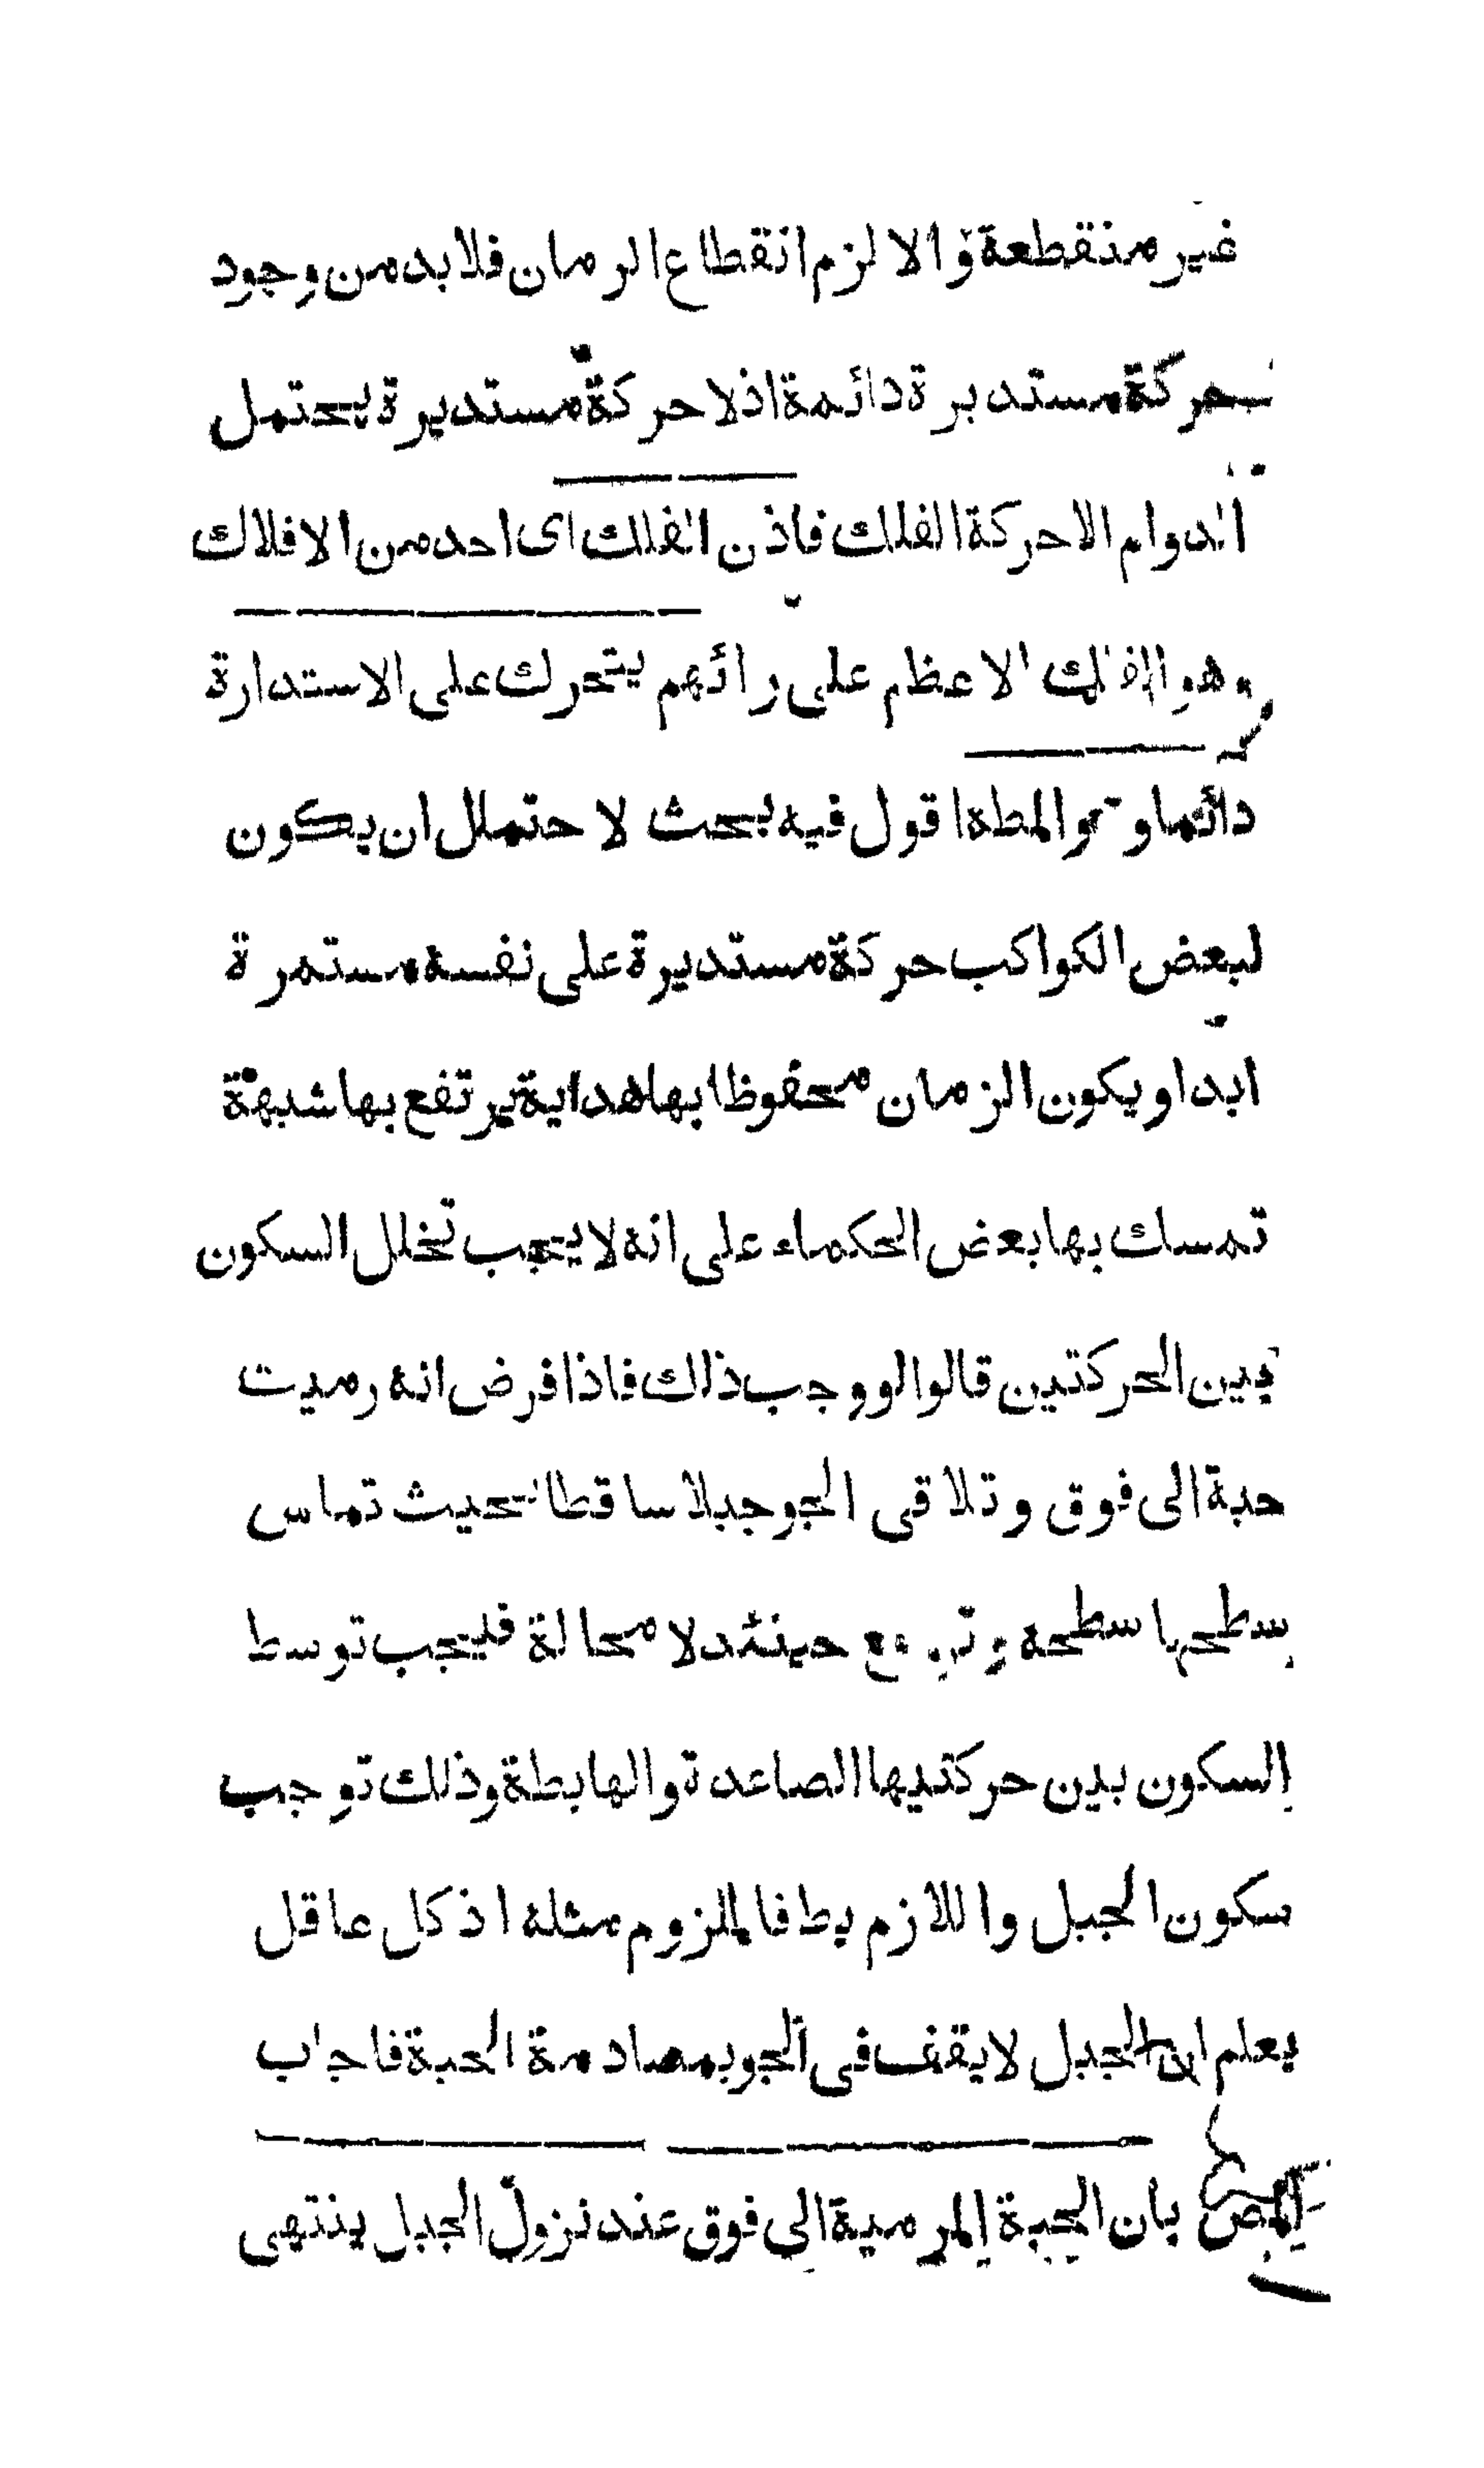 غير منقطعة والا لزم انقطاع الرمان فلا بد من وجود
حركة مستديرة دائمة اذ لا حركة مستديرة يحتمل
الدوام الا حركة الفلك فاذن الفلك اى احد من الافلاك
وهو الفلك الاعظم على رائهم يتحرك على الاستدارة
دائما وهو المطه اقول فيه بحث لا حتملل ان يكون
لبعض الكواكب حركة مستديرة على نفسه مستمرة
ابدا ويكون الزمان محفوظا بها هداية يرتفع بها شبهة
تمسك بها بعض الحكماء على انه لا يجب تخلل السكون
بين الحركتين قالوا لو وجب ذلك فاذا فرض انه رميت
حبة الى فوق وتلاقى الجو جبلا ساقطا بحيث تماس
سطحها سطحه حينئد لا محالة فيجب توسط
السكون بين حركتيها الصاعدة والهابطة وذلك توجب
سكون الجبل واللازم بط فالملزوم مثله اذ كل عاقل
يعلم ان الجبل لا يقف فى الجو بمصادمة الحبة فاجاب
المص بان الحبة المرمية الى فوق عند نزول الجبل ينتهى